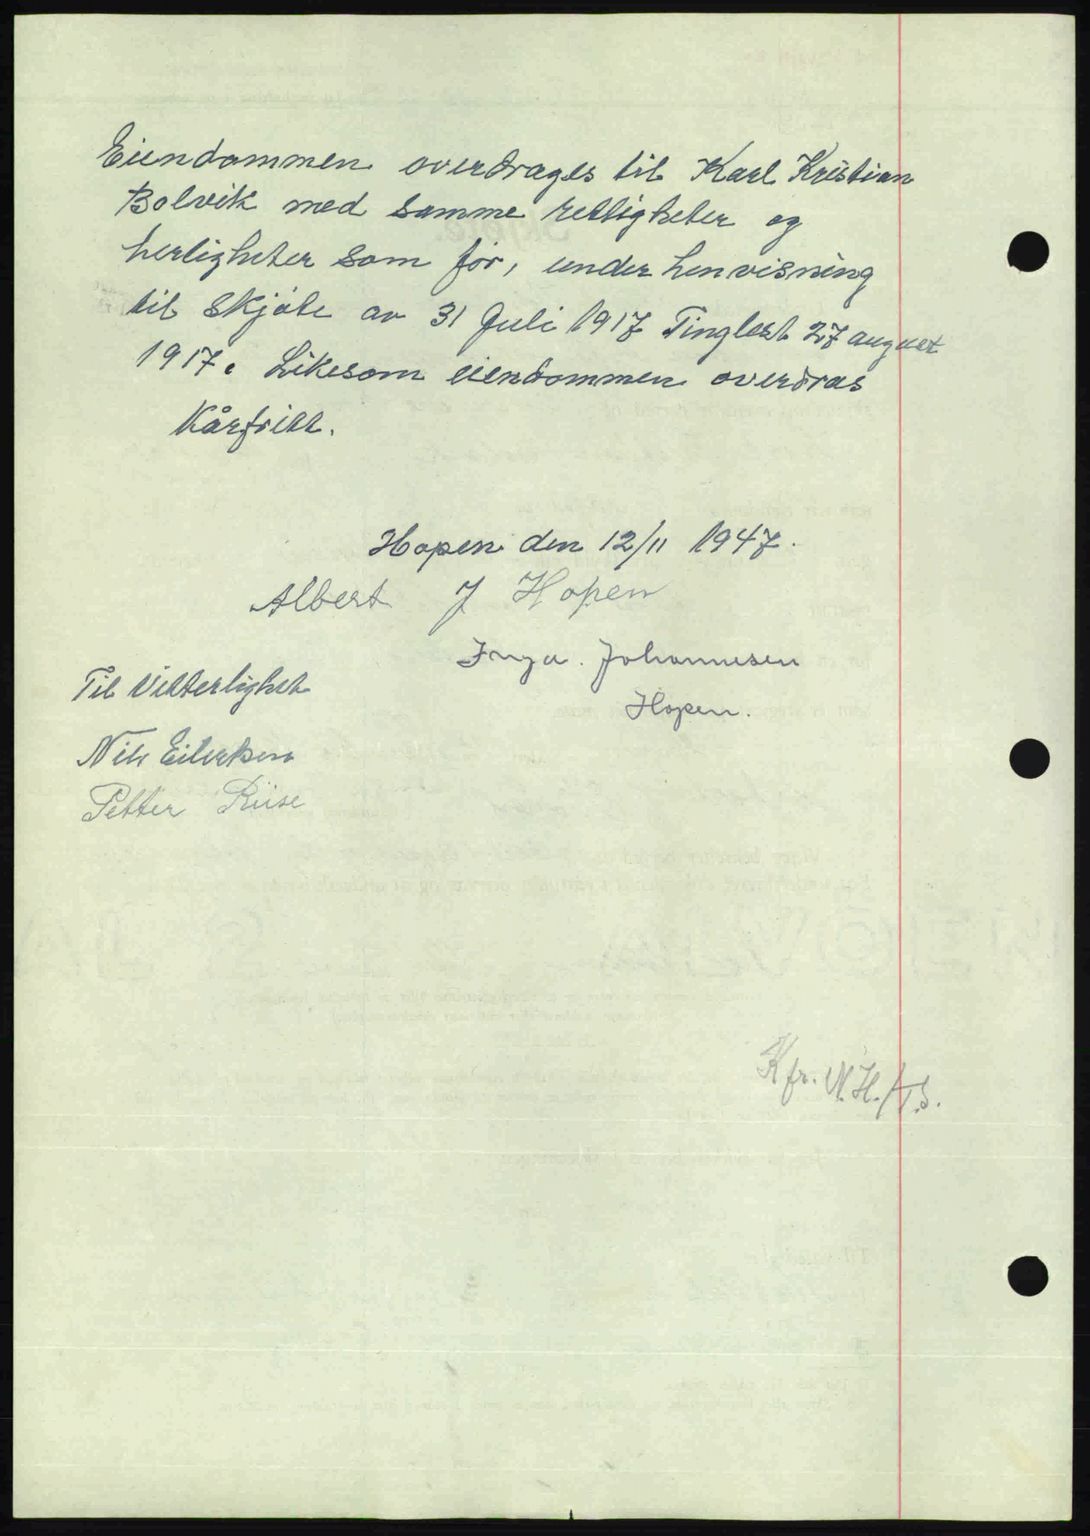 Eiendommen overdrages til Karl Kristian
Bolvik med samme rettigheter og
herligheter som før, under henvisning
til skjøte av 31 Juli 1917 Tinglest 27 august
1917. Likesom eiendommen overdras
Kårfritt.
Hopen den 12/11 1947.
Albert J Hopen
Inga. Johannesen
Hopen.
Til Vitterlighet
Nils Eilertsen
Petter Riise
Kfr. N.H./T.S.